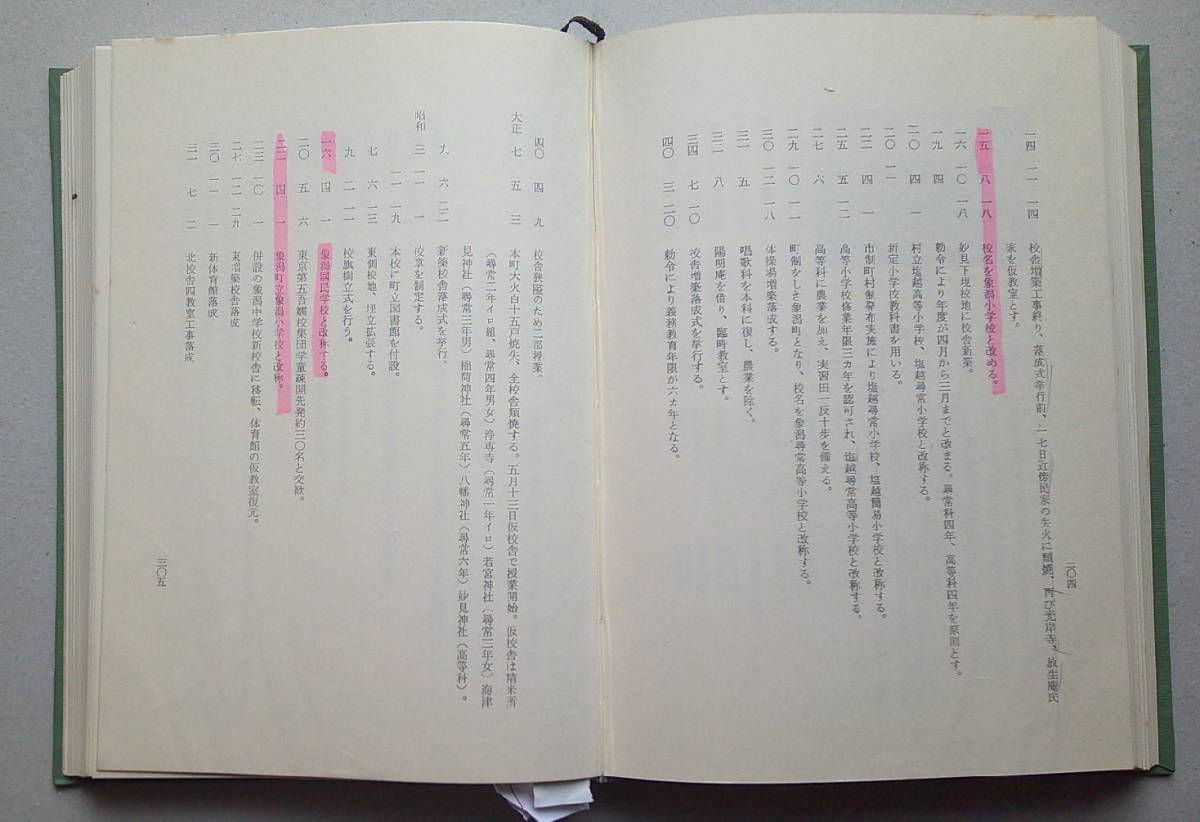 一四 一一 一四 校舎増築工事終り、落成式挙行前、一七日近傍民家の失火に類焼、再び光岸寺、放生庵民
家を仮教室とす。
一五 八 一八 校名を象潟小学校と改める。
一六 一〇 一八 妙見下現校地に校舎新築。
一九 四 勅令により年度が四月から三月までと改まる。尋常科四年、高等科四年を原則とす。
二〇 四 村立塩越高等小学校、塩越尋常小学校と改称する。
二〇 一一 新定小学校教科書を用いる。
二二 四 一 市制町村制発布実施により塩越尋常小学校、塩越簡易小学校と改称する。
二五 五 一二 高等小学校修業年限三カ年を認可され、塩越尋常高等小学校と改称する。
二七 六 高等科に農業を加え、実習田一反十歩を備える。
二九 一〇 一二 町制をしき象潟町となり、校名を象潟尋常高等小学校と改称する。
三〇 一二 一八 体操場増築落成する。
三一 五 唱歌科を本科に復し、農業を除く。
三二 八 陽明庵を借り、臨時教室とす。
三四 七 一〇 校舎増築落成式を挙行する。
四〇 三 二〇 勅令により義務教育年限が六カ年となる。
二〇四
四〇 四 九 校舎狭隘のため二部授業。
大正 七 五 三 本町大火白十五戸焼失、全校舎類焼する。五月十三日仮校舎で授業開始。仮校舎は精米所
（尋常二年イロ組、尋常四年男女）浄専寺（尋常一年イロ）若宮神社（尋常三年女）海津
見神社（尋常三年男）稲荷神社（尋常五年）八幡神社（尋常六年）妙見神社（高等科）。
九 六 二二 新築校舎落成式を挙行。
昭和 三 一一 一 校章を制定する。
一一 一九 本校に町立図書館を付設。
七 六 一三 東側校地、埋立拡張する。
九 二 一一 校旗樹立式を行う。
一六 四 一 象潟國民学校と改称する。
二〇 五 六 東京第五吾嬬校集団学童疎開先発約三〇名と交歓。
二二 四 一 象潟町立象潟小学校と改称。
二三 一〇 一 併設の象潟中学校新校舎に移転、体育館の仮教室復元。
二七 一二 二九 東増築校舎落成
三〇 一一 一 新体育館落成
三一 七 二 北校舎四教室工事落成
三〇五